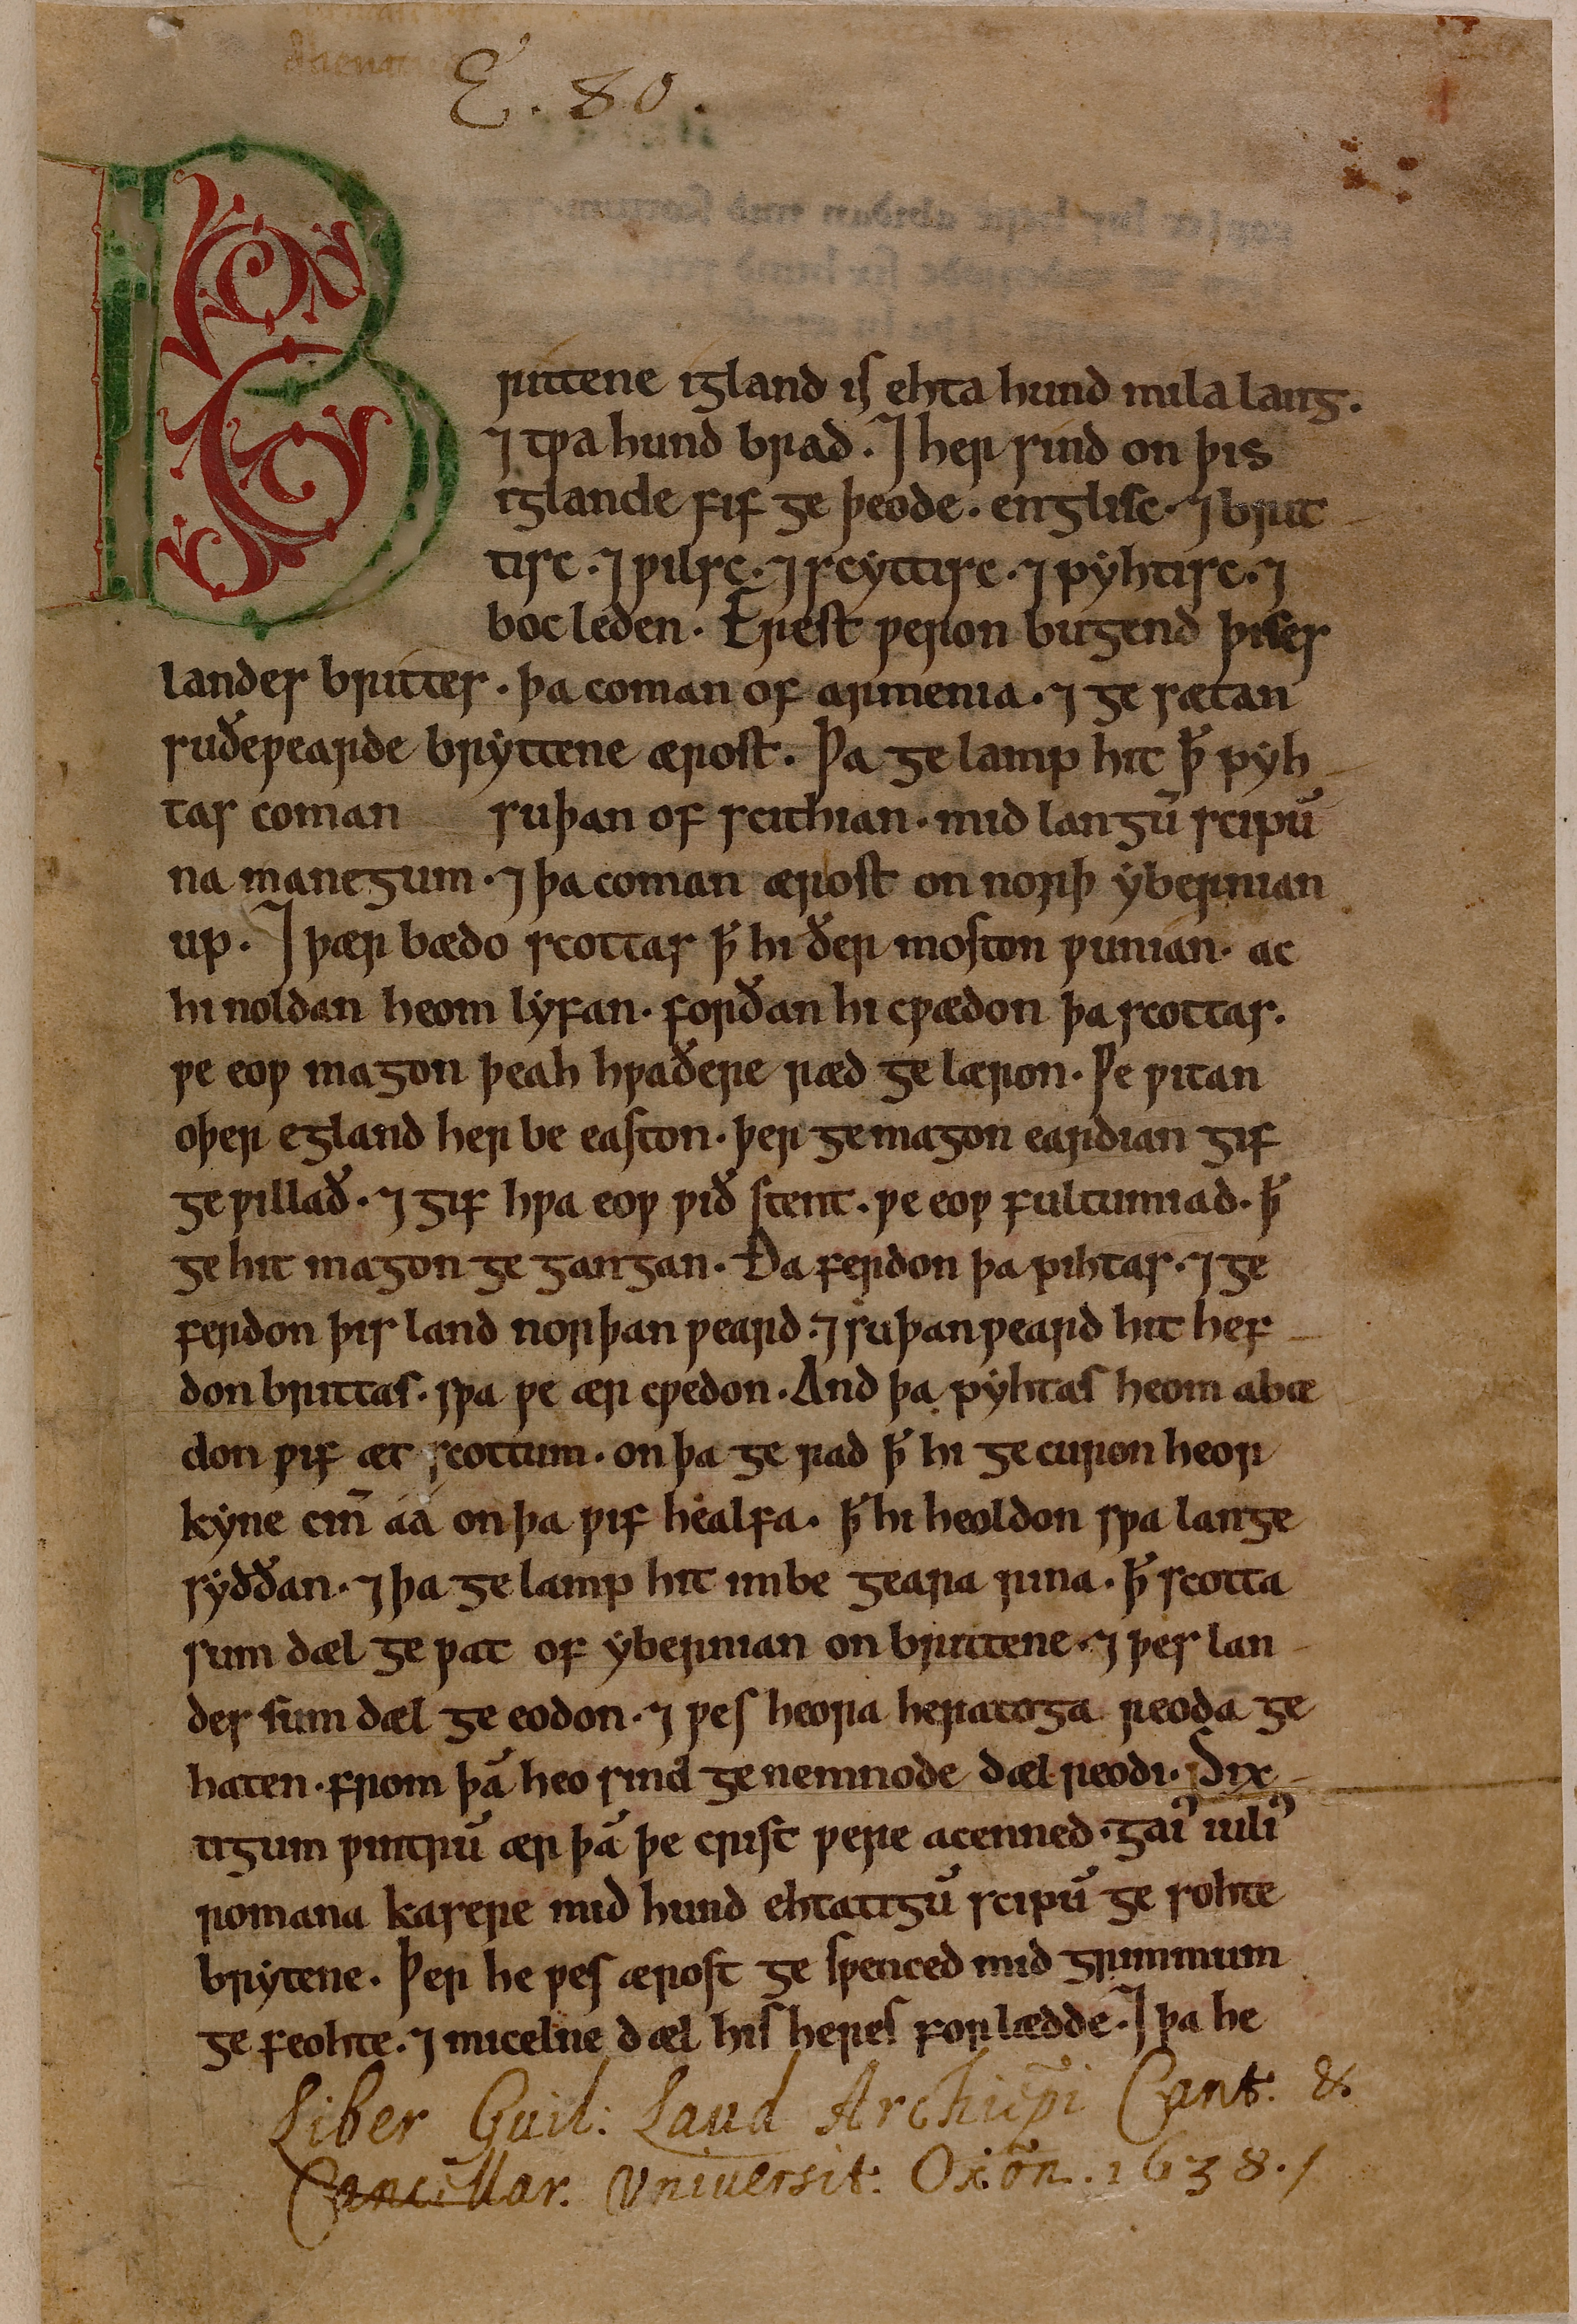 E. 80.
Brittene igland is ehta hund mila lang.
⁊ tƿa hund brad. ⁊ her sind on þis
iglande fif ge þeode. englisc. ⁊ brit
tisc. ⁊ ƿilsc. ⁊ scyttisc. ⁊ pyhtisc. ⁊
boc leden. Erest ƿeron bugend þises
landes brittes. þa coman of armenia. ⁊ ge sætan
suðeƿearde bryttene ærost. Þa ge lamp hit ꝥ pyh
tas coman suþan of scithian. mid langū scipū
na manegum. ⁊ þa coman ærost on norþ ybernian
up. ⁊ þær bædo scottas ꝥ hi ðer moston ƿunian. ac
hi noldan heom lyfan. forðan hi cƿædon þa scottas.
ƿe eoƿ magon þeah hƿaðere ræd ge læron. Ƿe ƿitan
oþer egland her be easton. þer ge magon eardian gif
ge ƿillað. ⁊ gif hƿa eoƿ ƿið stent. ƿe eoƿ fultumiad. ꝥ
ge hit magon ge gangan. Ða ferdon þa pihtas. ⁊ ge
ferdon þis land norþan ƿeard. ⁊ suþan ƿeard hit hef
don brittas. sƿa ƿe ær cƿedon. And þa pyhtas heom abæ
don ƿif æt scottum. on þa ge rad ꝥ hi ge curon heor
kyne cin̄ aa on þa ƿif healfa. ꝥ hi heoldon sƿa lange
syððan. ⁊ þa ge lamp hit imbe geara rina. ꝥ scotta
sum dæl ge ƿat of ybernian on brittene. ⁊ þes lan
des sum dæl ge eodon. ⁊ ƿes heora heratoga reoda ge
haten. from þā heo sind ge nemnode dæl reodi. Six
tigum ƿintrū ær þā þe crist ƿere acenned. gai᷒ iuli᷒
romana kasere mid hund ehtatigū scipū ge sohte
brytene. Þer he ƿes ærost ge sƿenced mid grimmum
ge feohte. ⁊ micelne dæl his heres forlædde. ⁊ þa he
Liber Guil: Laud Archiep̃i Cant: &
Cancellar. Vniuersit: Oxõn. 1638./